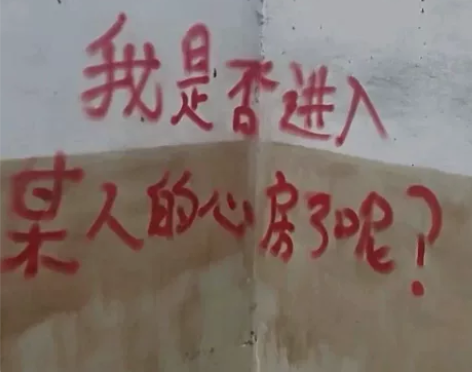 我是否进入
某人的心房了呢?